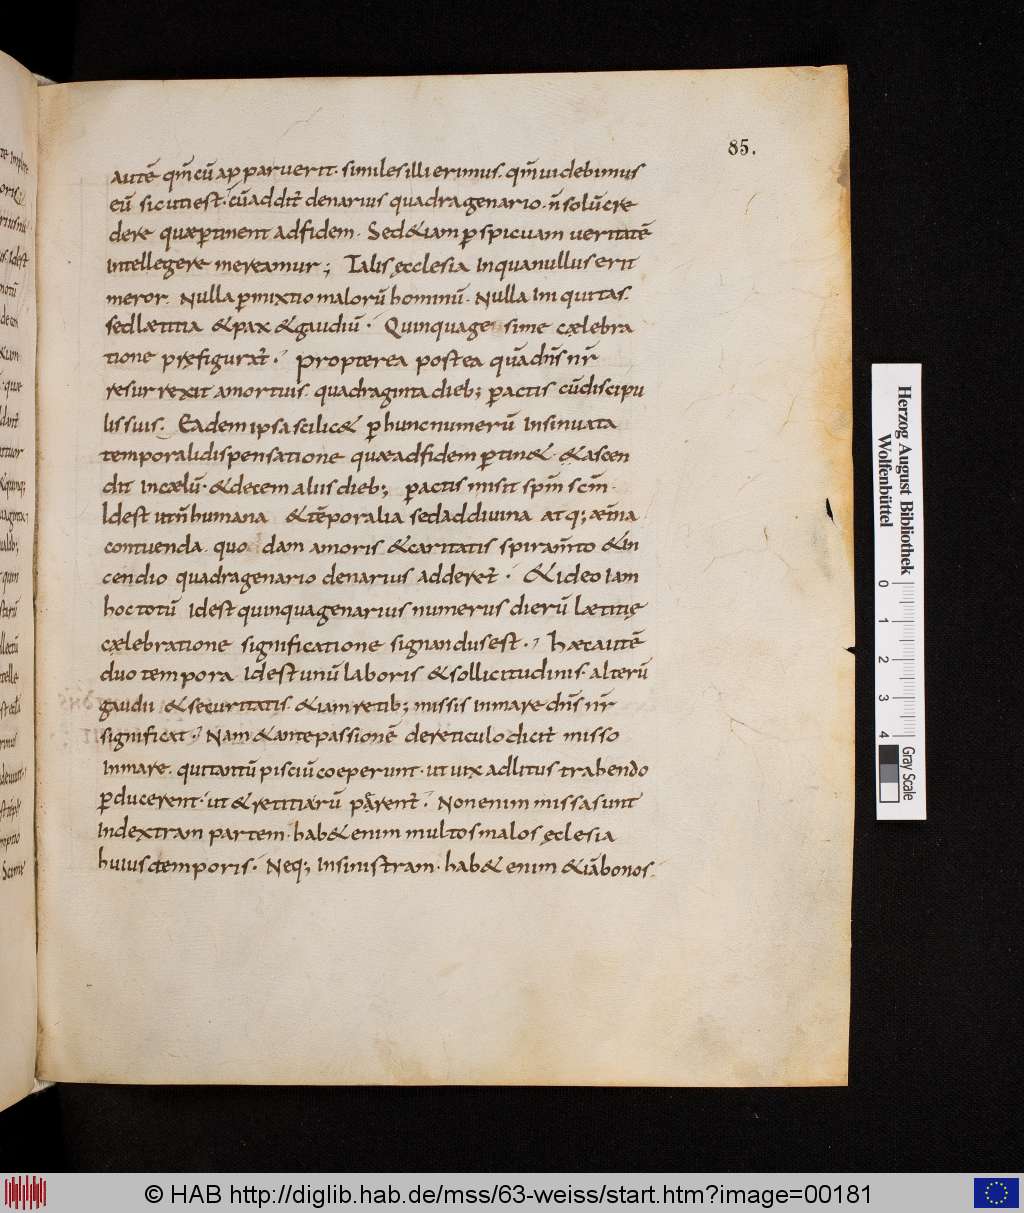 85.
autē qm̄ cū apparuerit· similes illi erimus. qm̄ uidebimus
eū sicuti est· cū addit̄ denarius quadragenario· n̄ solū cre
dere quæ ꝑtinent ad fidem· Sed & iam ꝑspicuam ueritatē
intellegere mereamur; Talis ęcclesia in qua nullus erit
meror. Nulla ꝑmixtio malorū hominū· Nulla iniquitas.
sed lætitia & pax & gaudiū· Quinquagesime cælebra
tione pręfigurat̄· propterea postea quā dn̄s nr̄
resurrexit a mortuis. quadraginta dieb; ꝑactis cū discipu
lis suis. Eadem ipsa scilic& ꝑ hunc numerū insinuata
temporali dispensatione quæ ad fidem ꝑtin&· & ascen
dit in cælū· & decem aliis dieb; ꝑactis misit sp̄m sc̄m·
Id est ut n̄ humana & tēporalia sed ad diuina atq; æt̄na
contuenda. quodam amoris & caritatis spiram̄to & in
cendio quadragenario denarius adderet̄· & ideo iam
hoc totū id est quinquagenarius numerus dierū lætitię
cælebratione significatione signandus est· Hæc autē
duo tempora id est unū laboris & sollicitudinis· alterū
gaudii & securitatis· & iam retib; missis in mare dn̄s nr̄
significat· Nam & ante passionē de reticulo dicit̄ misso
in mare. qui tantū pisciū coeperunt· ut uix ad litus trahendo
ꝑducerent· ut & retia rū parent̄· Non enim missa sunt
in dextram partem· hab& enim multos malos ęclesia
huius temporis· Neq; in sinistram· hab& enim & iā bonos.
Herzog August Bibliothek
Wolfenbüttel
0 1 2 3 4
Gray Scale
© HAB http://diglib.hab.de/mss/63-weiss/start.htm?image=00181